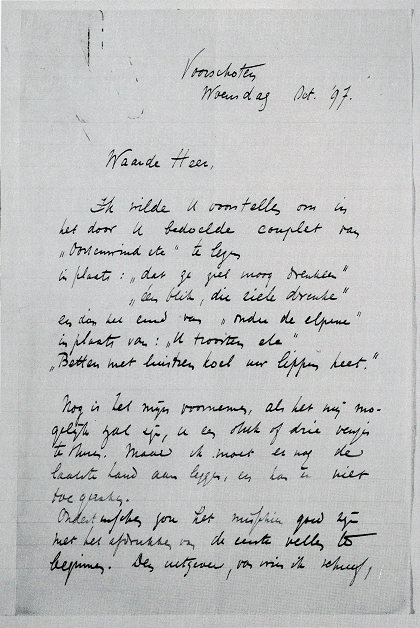 Voorschoten
Woensdag Oct. '97.
Waarde Heer,
Ik wilde U voorstellen om in
het door U bedoelde couplet van
„Oostenwind etc" te lezen
in plaats: „dat ge ziel moog drenken"
„een blik, die ziele drenke"
en dan het eind van „onder de
in plaats van: „U troosten
„Betten met luistren koel uw lippen heet."
Nog is het mijn voornemen, als het mij mo-
gelijk zal zijn, u een stuk of drie versjes
te sturen. Maar ik moet er nog de
laatste hand aan leggen, en kan er niet
toe geraken.
Ondertusschen zou het misschien goed zijn
met het afdrukken van de eerste vellen te
beginnen. Den uitgever, van wien ik schreef,